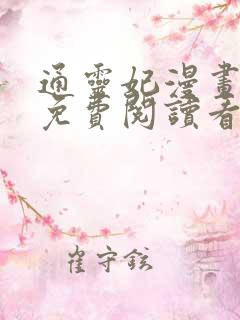 通靈妃漫畫
免費閱讀看
崔守鉉